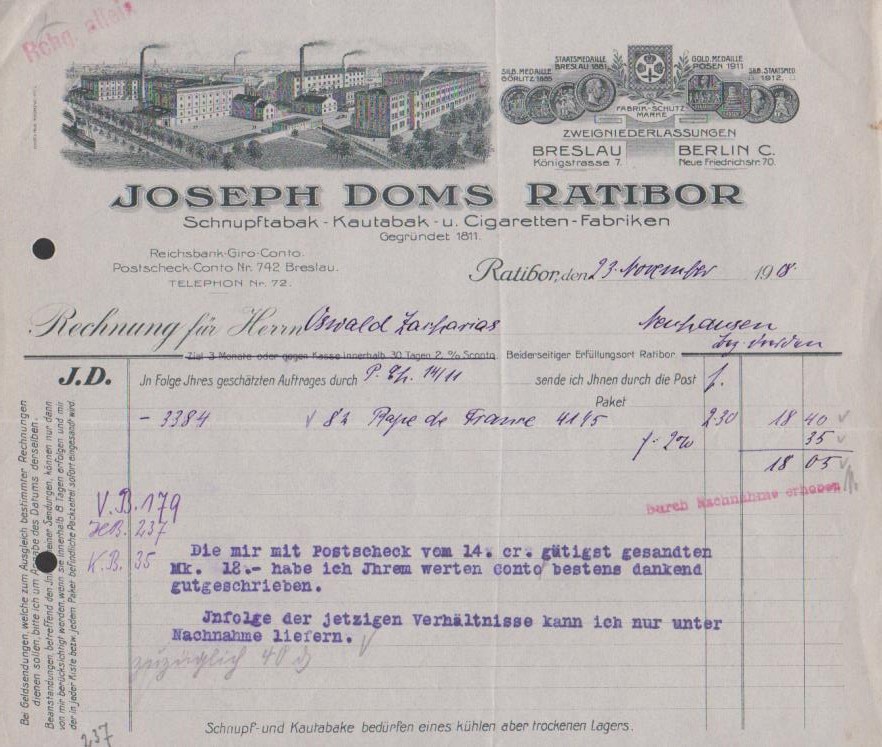 Rchg. allein
SILB. MEDAILLE
GÖRLITZ 1885
STAATSMEDAILLE
BRESLAU 1881
GOLD. MEDAILLE
POSEN 1911
SILB. STAATSMED.
1912.
FABRIK-SCHUTZ
MARKE
ZWEIGNIEDERLASSUNGEN
BRESLAU
Königstrasse 7.
BERLIN C.
Neue Friedrichstr. 70.
JOSEPH DOMS RATIBOR
Schnupftabak-Kautabak-u. Cigaretten-Fabriken
Gegründet 1811.
Reichsbank-Giro-Conto.
Postscheck-Conto Nr. 742 Breslau.
TELEPHON Nr. 72.
Ratibor, den 23. November 1918.
Rechnung für Herrn Oswald Zacharias
Neuhausen
Ziel 3 Monate oder gegen Kasse innerhalb 30 Tagen 2 % Sconto
Beiderseitiger Erfüllungsort Ratibor
J.D.
Jn Folge Jhres geschätzten Auftrages durch 14/11 sende ich Jhnen durch die Post
Paket
- 3384 Rape de France 4195 2.30 18 40
2% 35
18 05
Durch Nachnahme erhoben
V.B. 179
237
K.B. 35
Die mir mit Postscheck vom 14. cr. gütigst gesandten
Mk. 18.- habe ich Jhrem werten conto bestens dankend
gutgeschrieben.
Jnfolge der jetzigen Verhältnisse kann ich nur unter
Nachnahme liefern.
zuzüglich 40
Bei Geldsendungen, welche zum Ausgleich bestimmter Rechnungen
dienen sollen, bitte ich um Angabe des Datums derselben.
Beanstandungen, betreffend den Jnhalt einer Sendungen, können nur dann
von mir berücksichtigt werden, wenn sie innerhalb 8 Tagen erfolgen und mir
der in jeder Kiste bezw. jedem Paket befindliche Packzettel sofort eingesandt wird.
237
Schnupf-und Kautabake bedürfen eines kühlen aber trockenen Lagers.